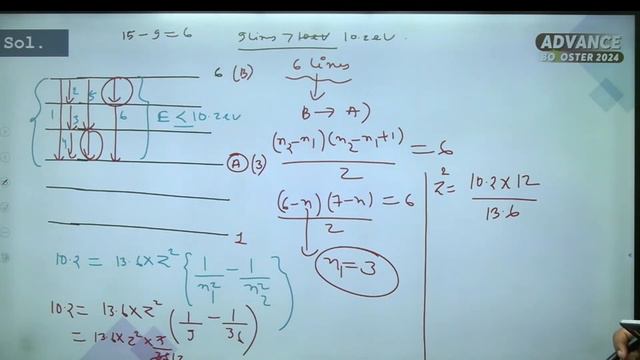 Sol.
15 - 9 = 6
9 lines > 10.2 eV
ADVANCE
BOOSTER 2024
6 (B)
6 lines
1 2 3 4 5 6
E ≤ 10.2 eV
B → A)
A (3)
(n₂-n₁)(n₂-n₁+1) / 2 = 6
(6-n)(7-n) / 2 = 6
n₁ = 3
1
z² = 10.2 × 12 / 13.6
10.2 = 13.6 × z² { 1/n₁² - 1/n₂² }
10.2 = 13.6 × z² ( 1/9 - 1/36 )
= 13.6 × z² × 3